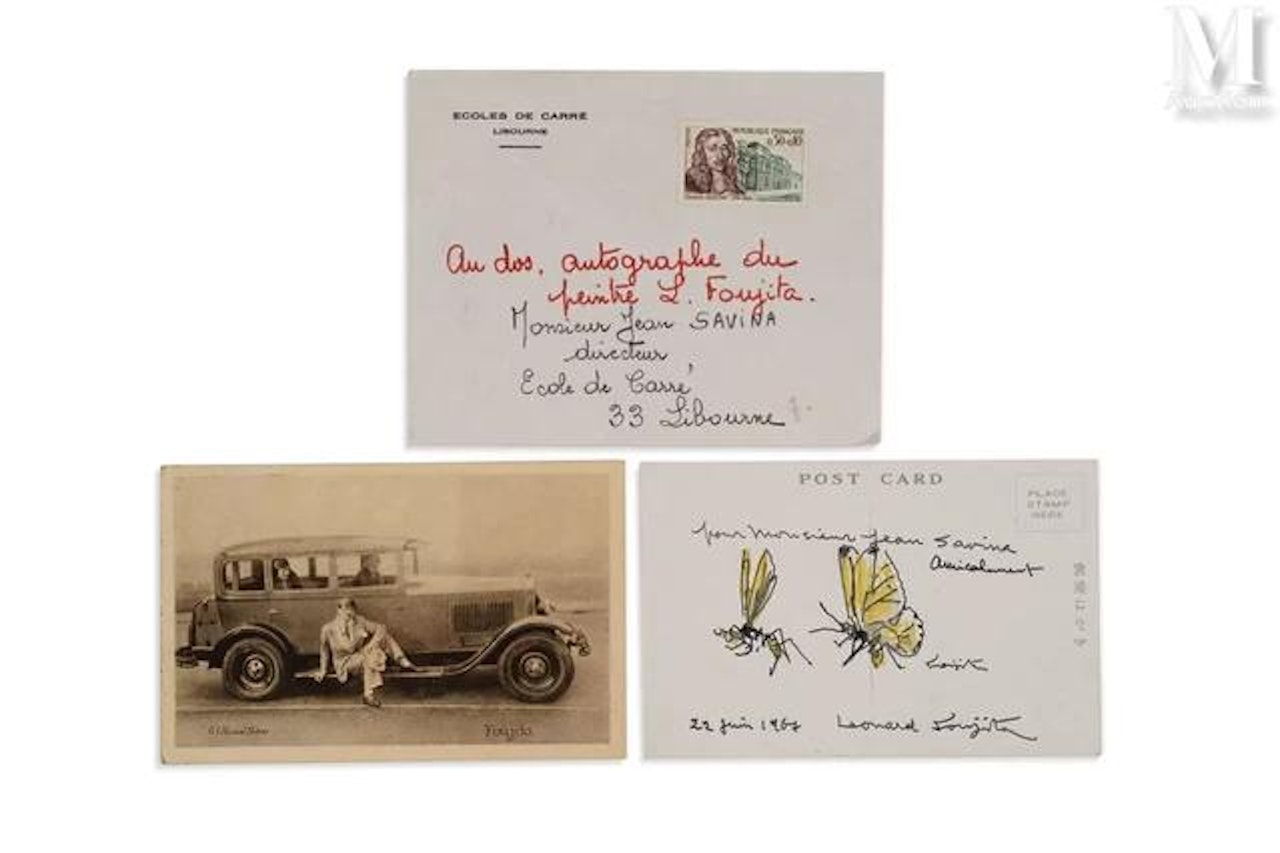 M
ECOLES DE CARRÉ
LIBOURNE
REPUBLIQUE FRANÇAISE
0,50+0,10
Au dos, autographe du
peintre L. Foujita.
Monsieur Jean SAVINA
directeur
Ecole de Carré
33 Libourne
Foujita
POST CARD
PLACE
STAMP
HERE
pour Monsieur Jean Savina
Amicalement
Foujita
22 Juin 1967 Leonard Foujita